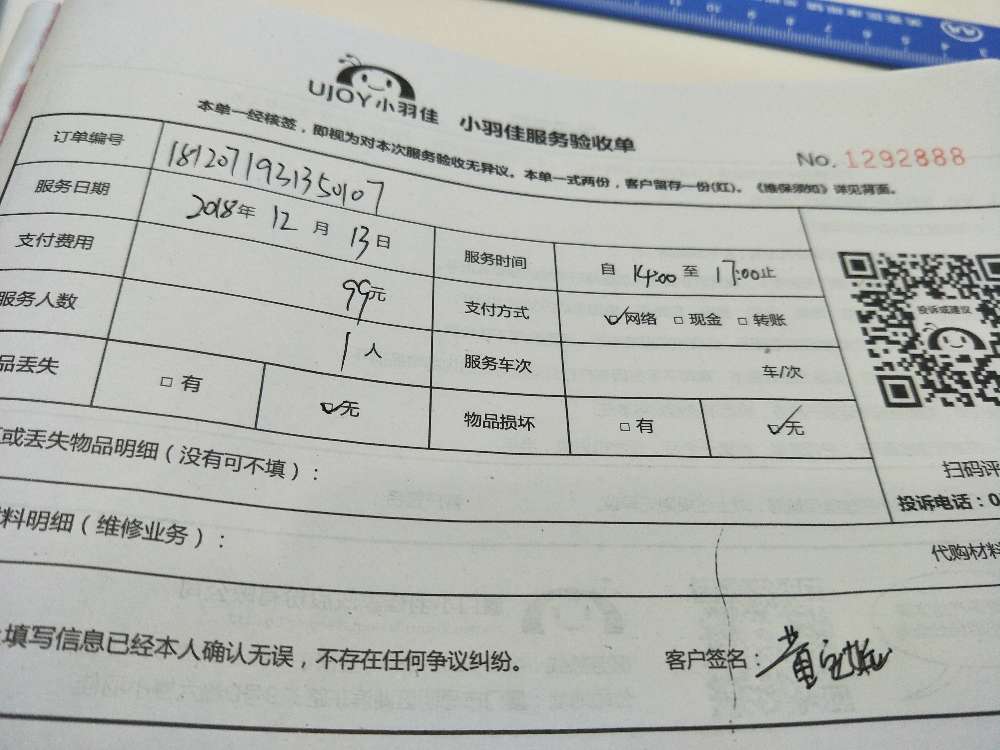 UJOY小羽佳 小羽佳服务验收单
本单一经核签，即视为对本次服务验收无异议。本单一式两份，客户留存一份(红)。《维保须知》详见背面。
No. 1292888
订单编号 1812071921350107
服务日期 2018年 12 月 13 日 服务时间 自 14:00 至 17:00 止
支付费用 99元 支付方式 网络 现金 转账
服务人数 1 人 服务车次 车/次
品丢失 有 无 物品损坏 有 无
投诉或建议
扫码评
投诉电话：0
或丢失物品明细（没有可不填）：
料明细（维修业务）：
代购材料
填写信息已经本人确认无误，不存在任何争议纠纷。
客户签名：黄